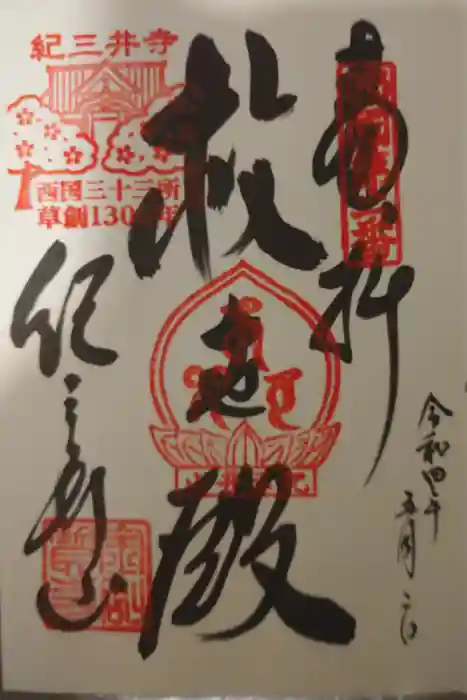 奉拝
西国第二番
救世殿
紀三井寺
西国三十三所
草創1300年
紀三井寺
令和四年
五月二日